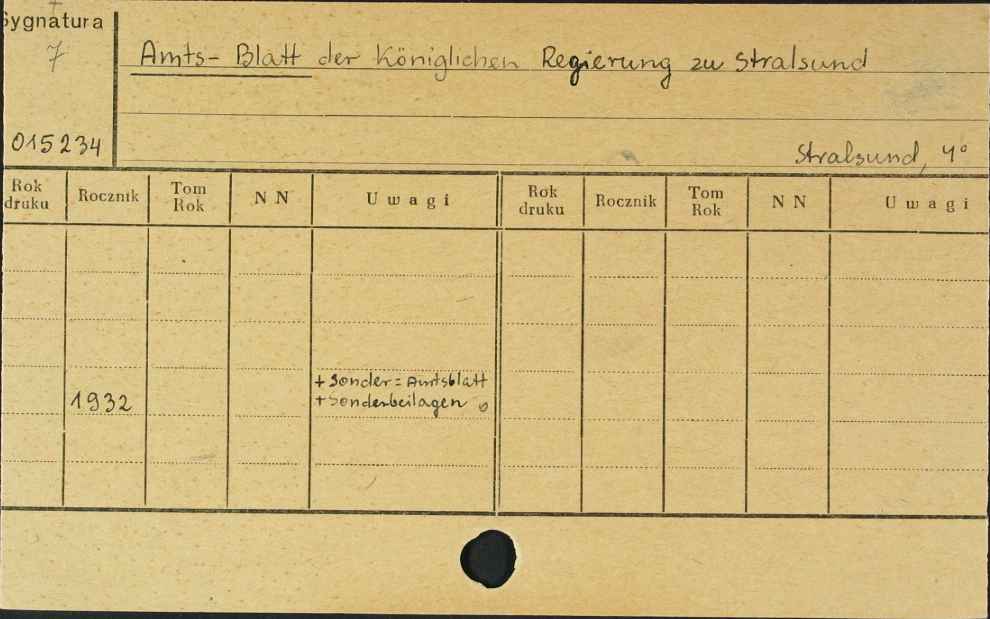 Sygnatura
7
Amts-Blatt der Königlichen Regierung zu Stralsund
015234
Stralsund, 4°
Rok druku Rocznik Tom Rok NN Uwagi Rok druku Rocznik Tom Rok NN Uwagi
+ Sonder=Amtsblatt
1932 + Sonderbeilagen